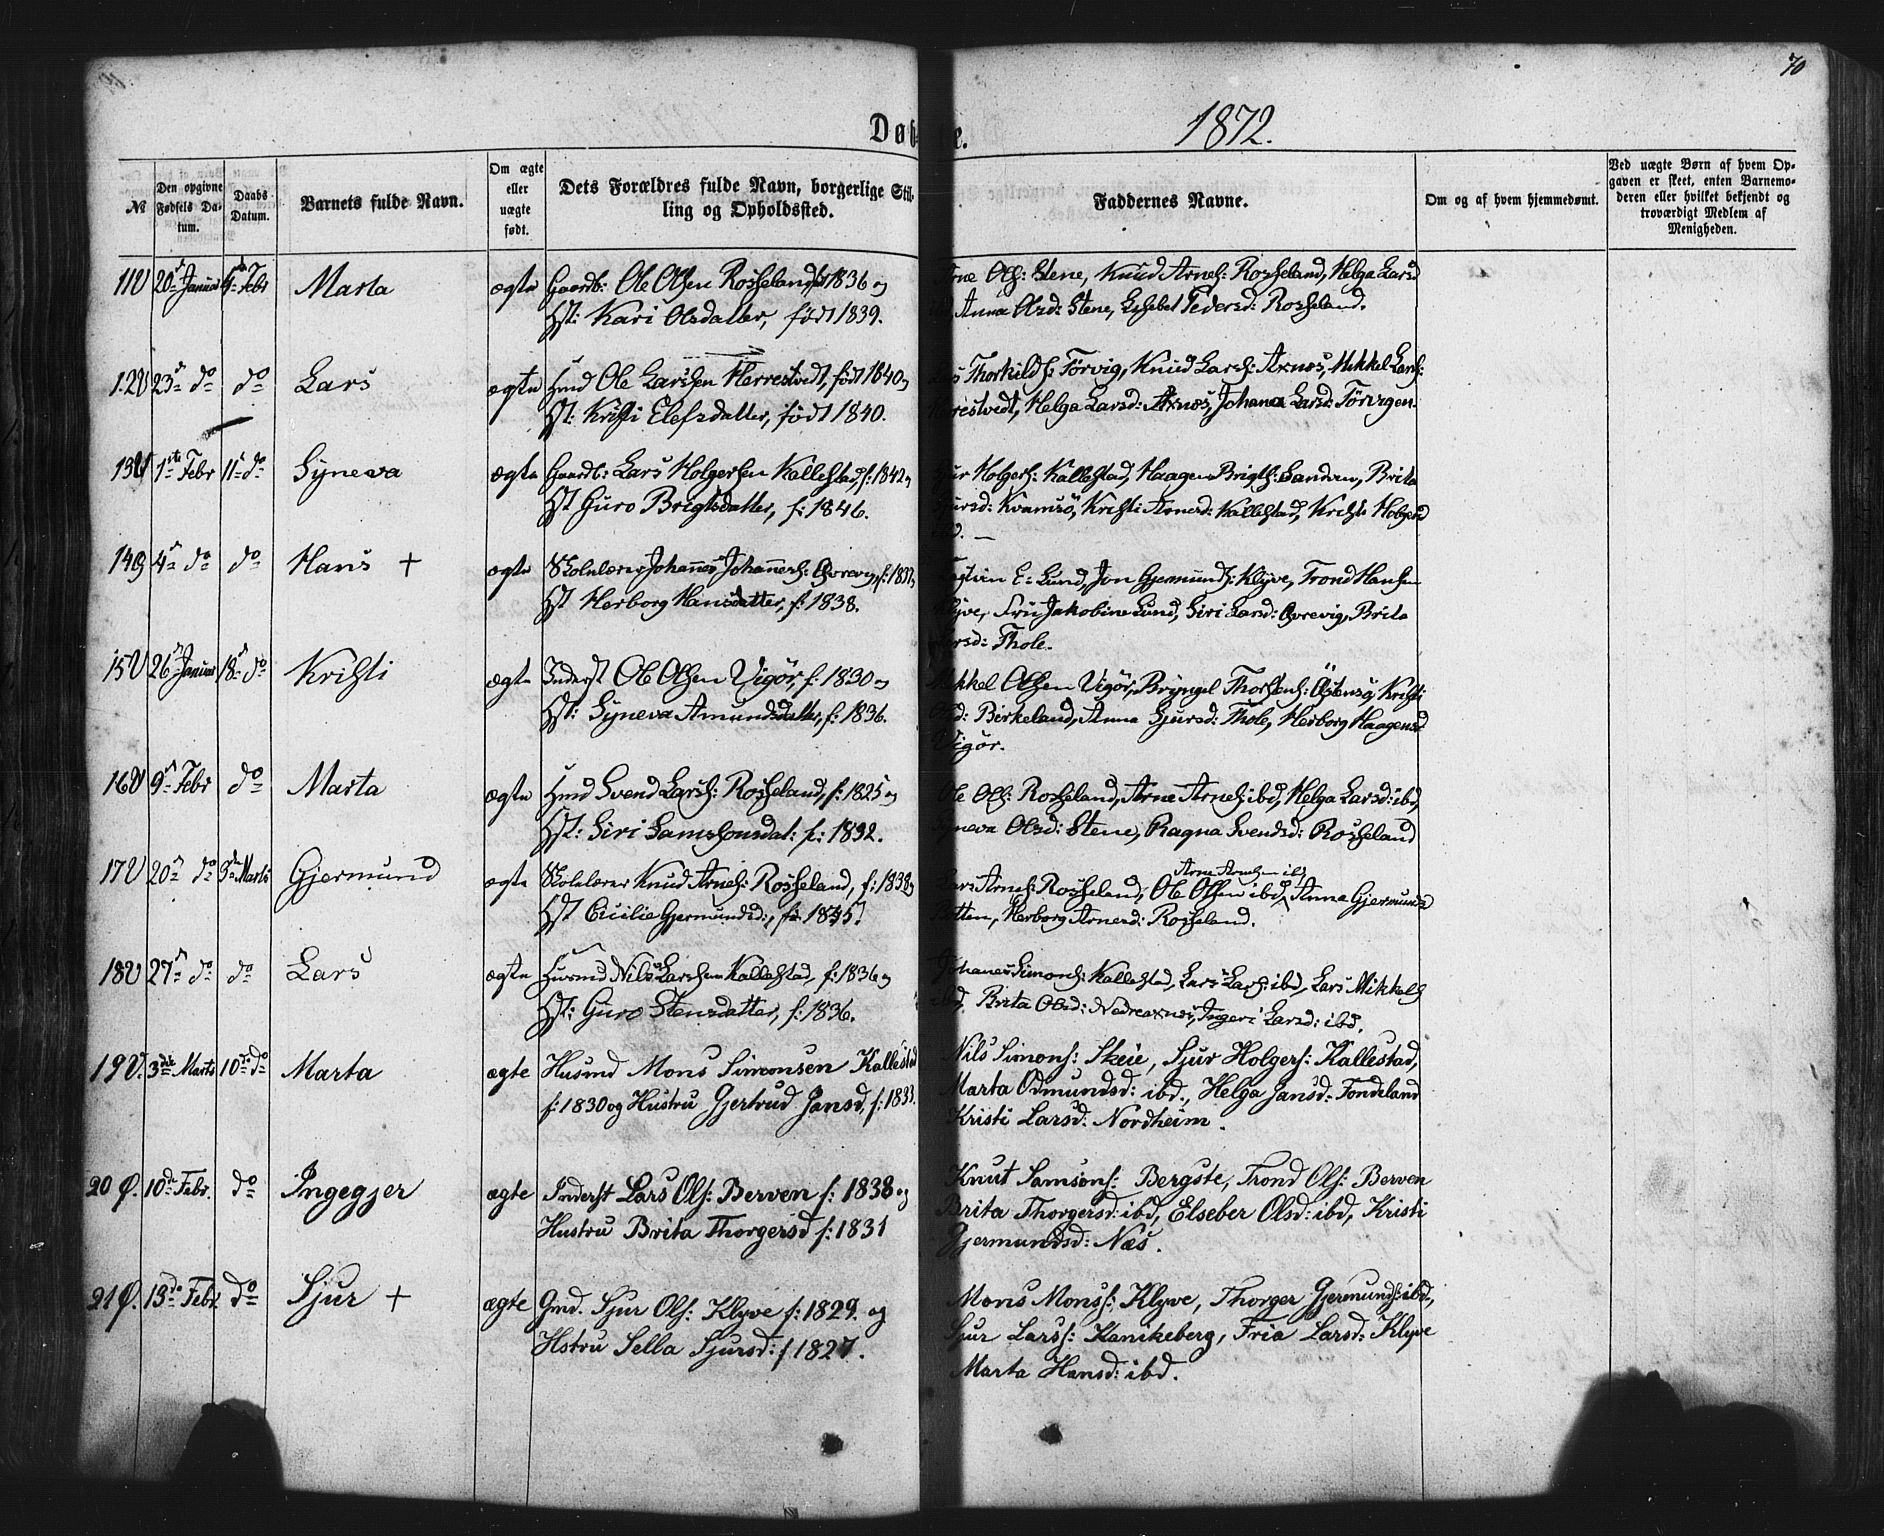 70
Døbte. 1872.
№ | Den opgivne Fødsels Datum. | Daabs Datum. | Barnets fulde Navn. | Om ægte eller uægte født. | Dets Forældres fulde Navn, borgerlige Stilling og Opholdssted. | Faddernes Navne. | Om og af hvem hjemmedøbt. | Ved uægte Børn af hvem Opgaven er skeet, enten Barnemoderen eller hvilket bekjendt og troværdigt Medlem af Menigheden.
11 V | 20de Januar | 4de Febr | Marta | ægte | Gaardb: Ole Olsen Rosseland, født 1836 og | Arne Ols: Stene, Knud Arnes: Rosseland, Helga Larsd
Hst: Kari Olsdatter, født 1839. | Anna Olsd: Stene, Lisebet Pedersd: Rosseland.
12 V | 23de do | do | Lars | ægte | Hmd Ole Larssen Herrestvedt, født 1840 og | Thorkilds: Tørvig, Knud Lars: Axnæs, Mikkel Lars:
Hst: Kristi Elefsdatter, født 1840. | Herrestvedt, Helga Larsd: Axnæs, Johanna Larsd: Tørvigen.
13 V | 1ste Febr | 11te do | Syneva | ægte | Gaardb: Lars Holgersen Kallestad, f: 1842 og | Sjur Holgers: Kallestad, Haagen Brigts: Sandven, Brita
Hst Guro Brigtsdatter, f: 1846. | Sjursd: Kvamsö, Kristi Arnesd: Kallestad, Kristi Holgersd
ibd. —
14 Ø | 4de do | do | Hans + | ægte | Skolelærer Johannes Johanness: Øvrevig, f: 1837 og | E: Lund, Jon Gjermunds: Klyve, Trond Hansen
Hst Herborg Hansdatter, f: 1838. | Klyve, Fru Jakobine Lund, Siri Larsd: Øvrevig, Brita
Larsd: Thole.
15 V | 26de Januar | 18de do | Kristi | ægte | Inderst Ole Olsen Vigör, f: 1830 og | Mikkel Olsen Vigör, Bryngel Thorstens: Östensö, Kristi
Hst: Syneva Amundsdatter, f: 1836. | Olsd: Birkeland, Anna Sjursd: Thole, Herborg Haagensd
Vigör.
16 V | 9de Febr | do | Marta | ægte | Hmd Svend Larss: Rosseland, f: 1825 og | Ole Ols: Rosseland, Arne Arnes: ibd, Helga Larsd: ibd,
Hst: Siri Samsonsdat: f: 1832. | Syneva Olsd: Stene, Ragna Svendsd: Rosseland
17 V | 20de do | 3die Marts | Gjermund | ægte | Skolelærer Knud Arnes: Rosseland, f: 1838 og | Lars Arnes: Rosseland, Ole Olsen ibd, Arne Arnesen ibd, Anna Gjermundsd
Hst Cicilie Gjermundsd:, f: 1845. | Botten, Herborg Arnesd: Rosseland.
18 V | 27de do | do | Lars | ægte | Husmd Nils Larssen Kallestad, f: 1836 og | Johanes Simons: Kallestad, Lars Lars: ibd, Lars Mikkels
Hst: Guro Stensdatter, f: 1836. | ibd, Brita Olsd: Nedreaxnæs, Ingeri Larsd: ibd.
19 V. | 3die Marts | 10de do | Marta | ægte | Husmd Mons Simonsen Kallestad | Nils Simons: Skeie, Sjur Holgers: Kallestad,
f: 1830 og Hustru Gjertrud Jansd, f: 1833. | Marta Odmundsd: ibd., Helga Jansd: Tondeland
Kristi Larsd: Nordheim.
20 Ø. | 10de Febr. | do | Ingegjer | ægte | Inderst Lars Ols: Berven f: 1838 og | Knut Samsons: Bergste, Trond Ols: Berven
Hustru Brita Thorgersd f: 1831 | Brita Thorgersd: ibd, Elseber Olsd: ibd, Kristi
Gjermundsd: Næs.
21 Ø. | 13de Febr. | do | Sjur + | ægte | Gmd. Sjur Ols: Klyve f: 1829. og | Mons Monss: Klyve, Thorger Gjermunds: ibd.,
Hstru Sella Sjursd: f 1827. | Sjur Larss: Kanikeberg, Fria Larsd: Klyve
Marta Hansd: ibd.